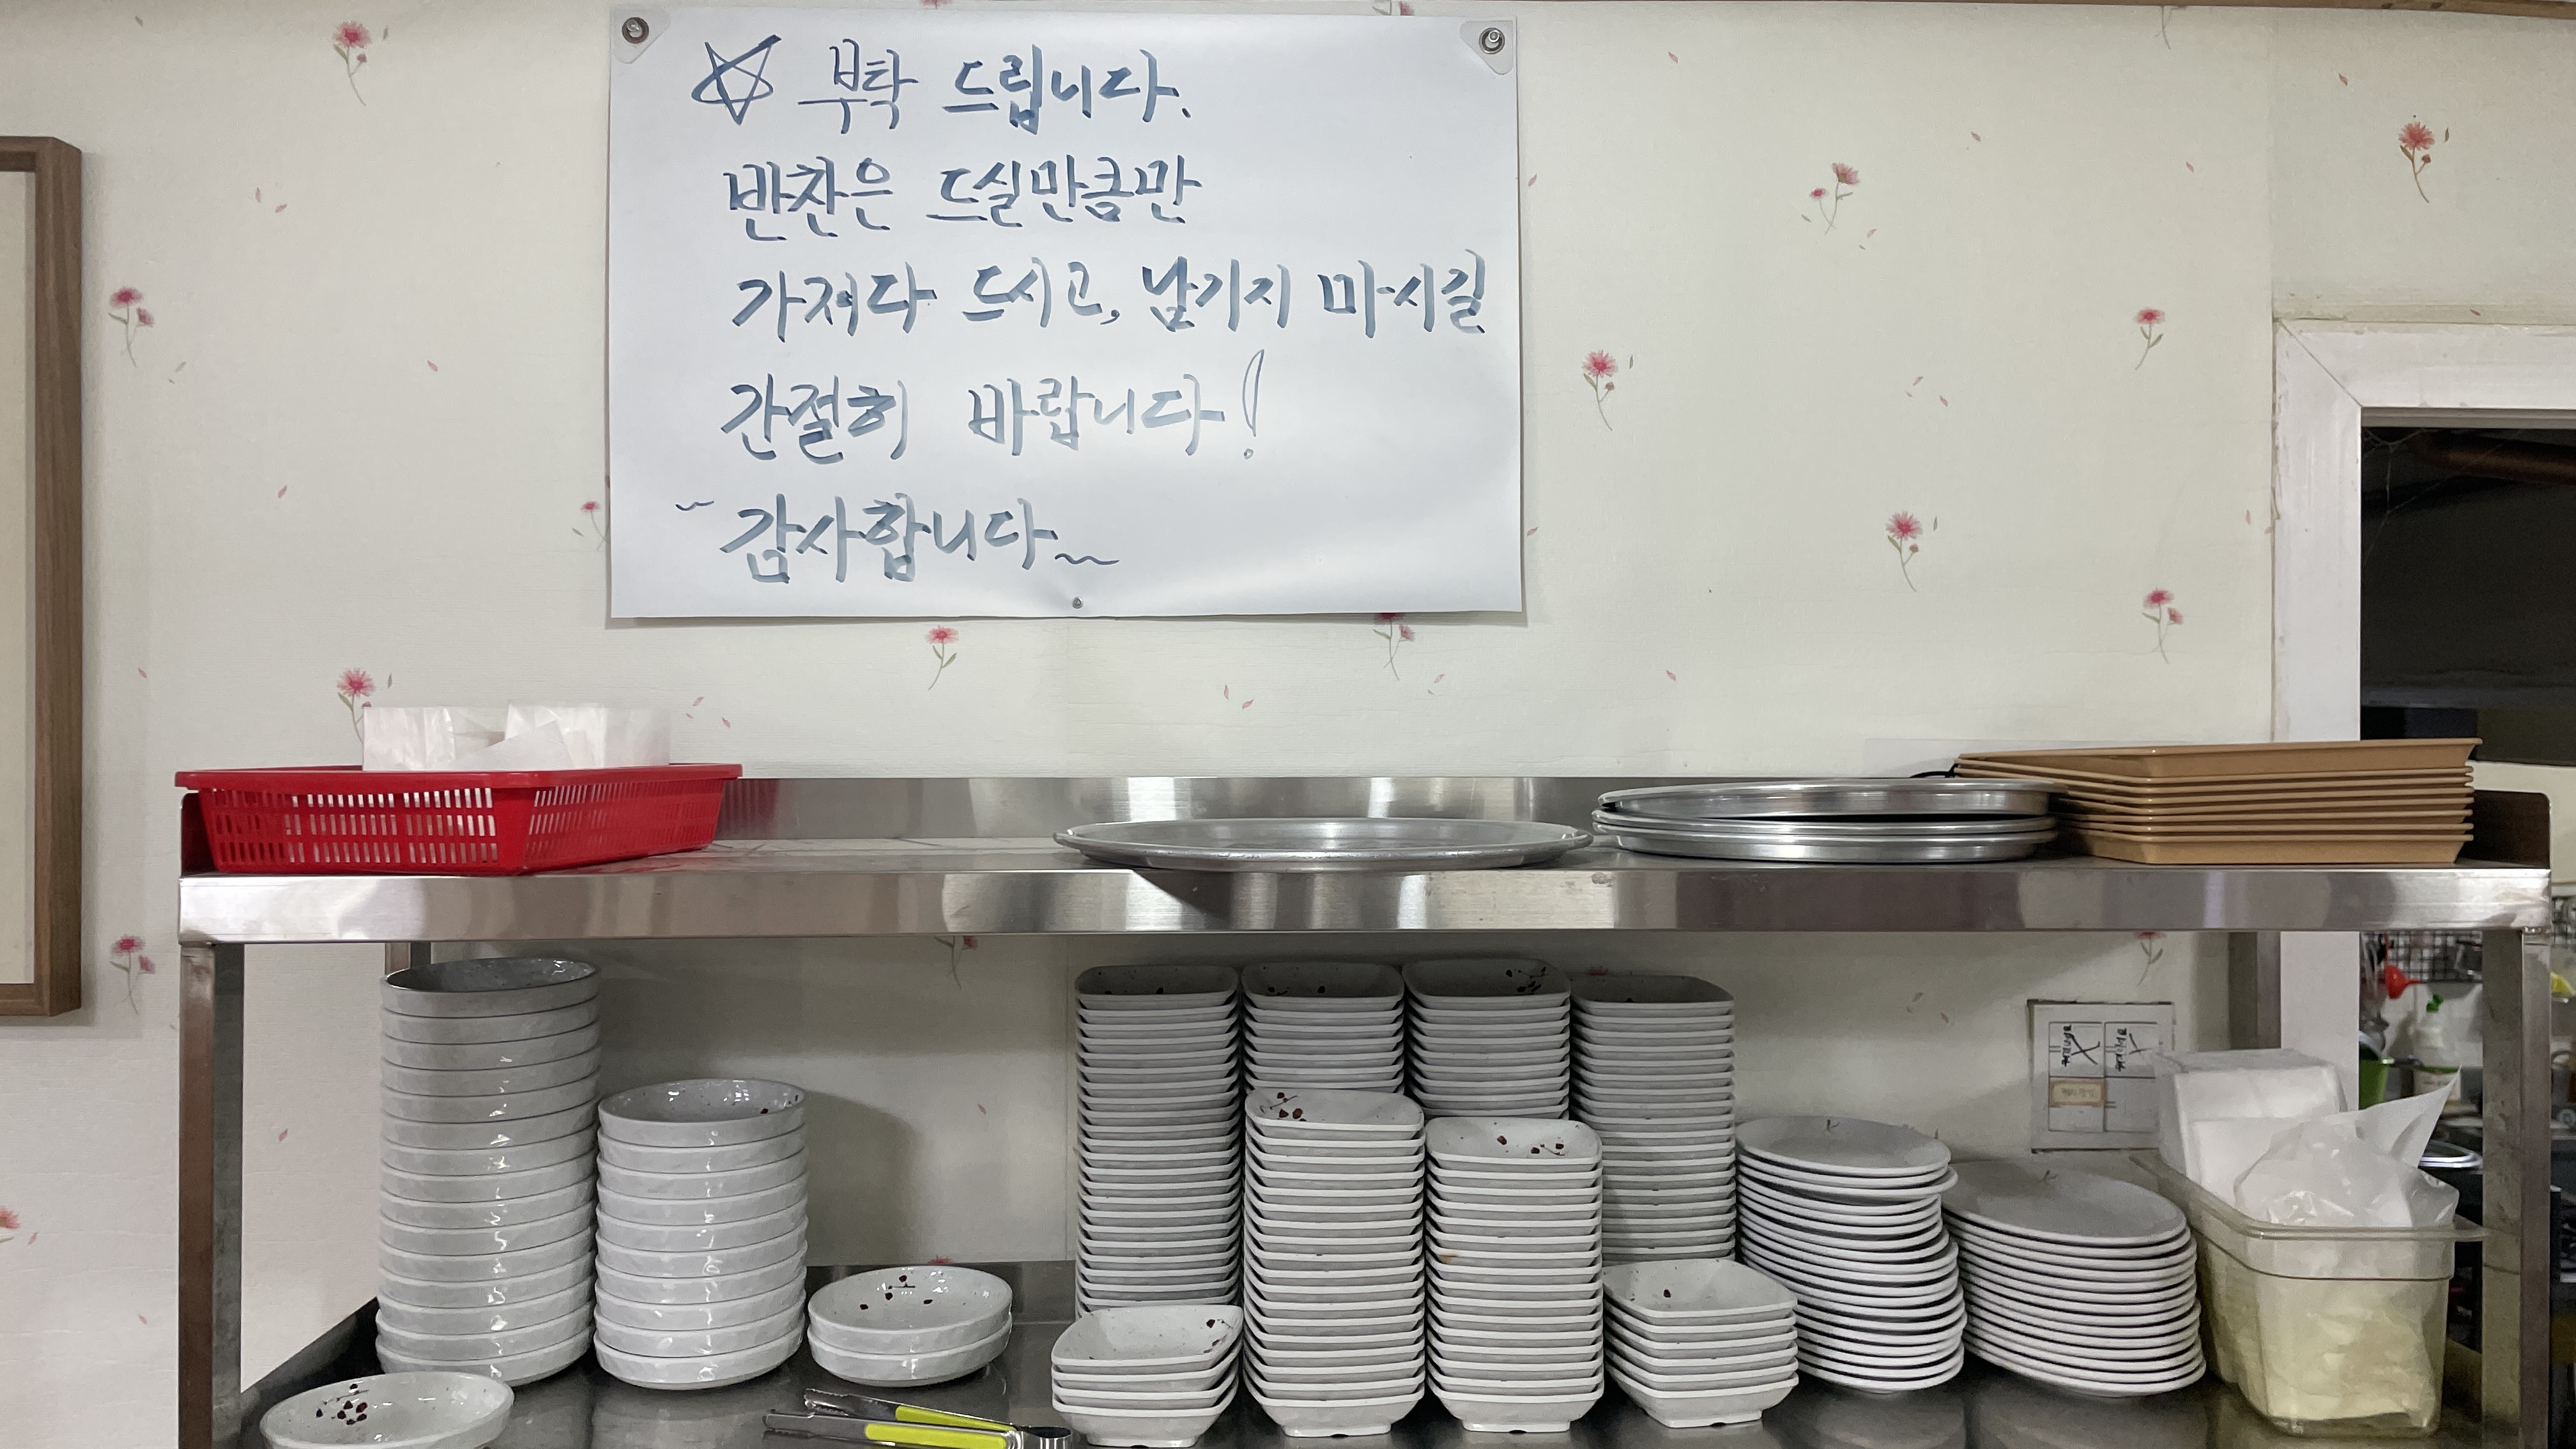 ☆ 부탁 드립니다.
반찬은 드실만큼만
가져다 드시고, 남기지 마시길
간절히 바랍니다!
~ 감사합니다~